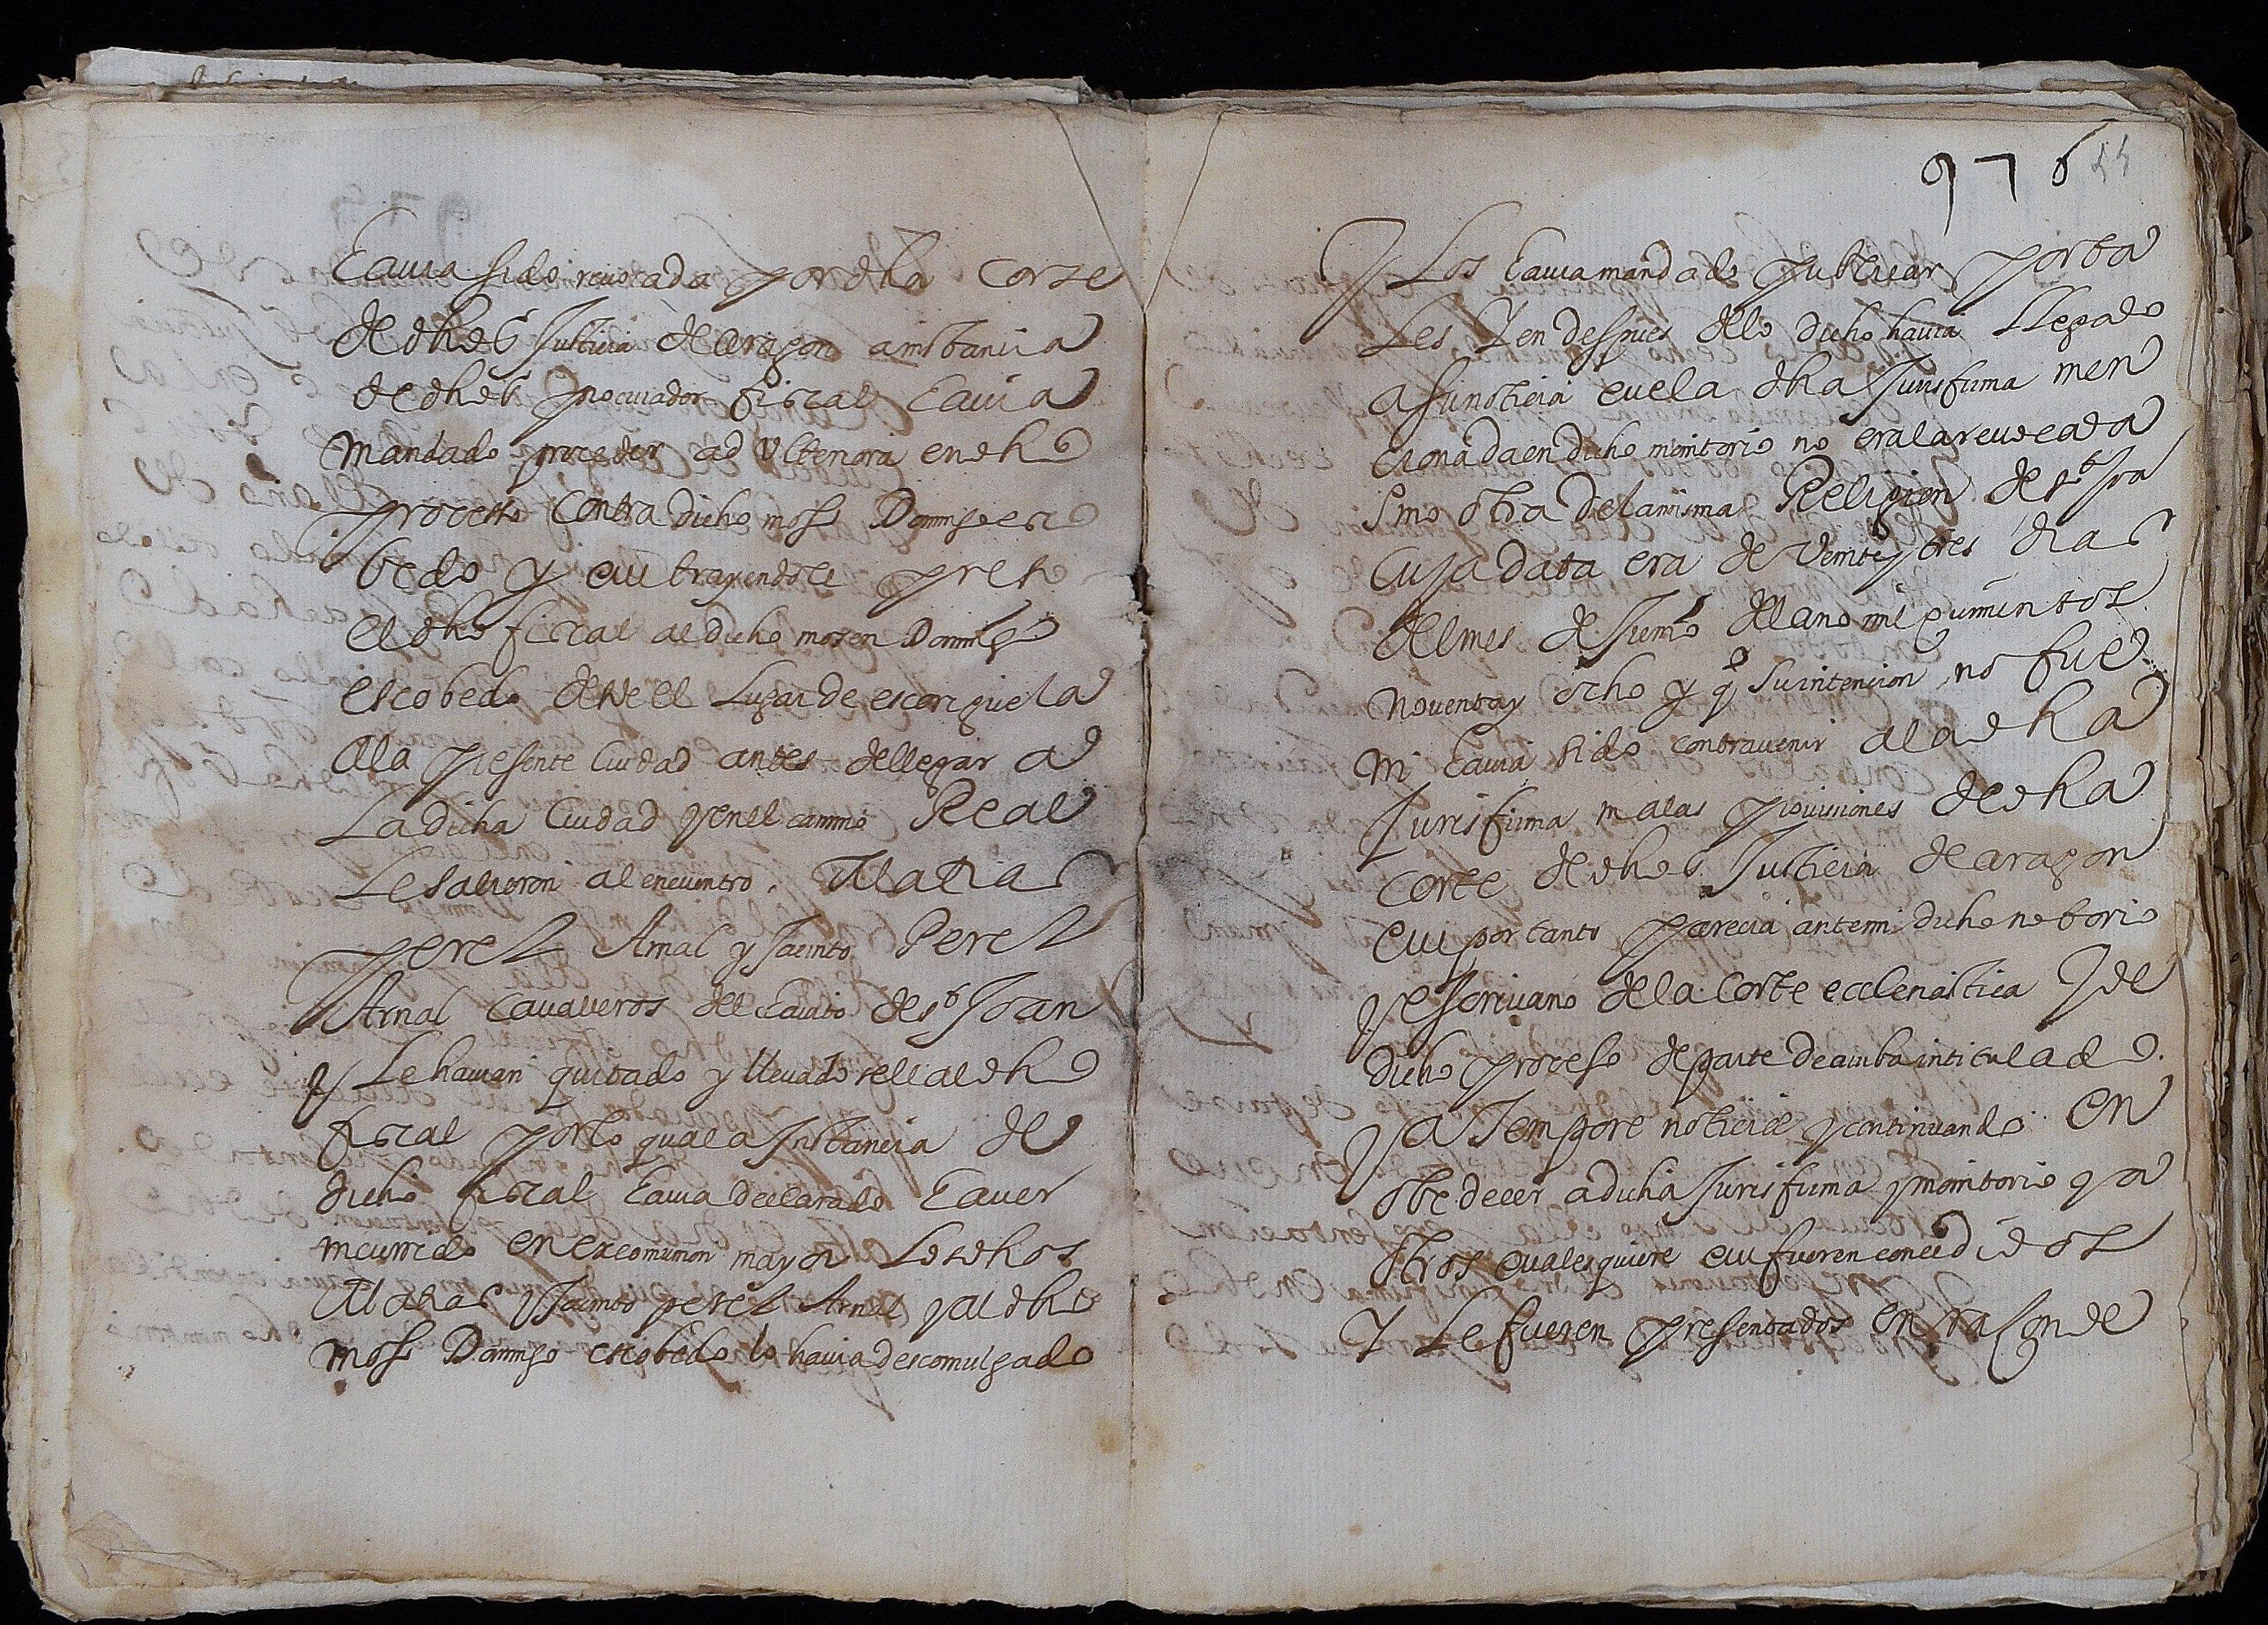 hauia sido reuocada por dha Corte
de dho Sr Justicia de Aragon a instancia
de dho Sr procurador fiscal hauia
mandado proceder ad Vlteriora en dho
processo contra dicho moss Domingo esco
bedo y que trayendole preso
el dho fiscal al dicho mosen Domingo
escobedo desde el Lugar de escorigüela
a la presente Ciudad antes de llegar a
La dicha Ciudad y en el camino Real
Le salieron al encuentro
perez Arnal y Jacinto Perez
Arnal caualleros del hauito de st Joan
y Le hauian quitado y lleuadoselo al dho
fiscal por lo qual a Instancia de
dicho fiscal hauia declarado hauer
incurrido en excomunion mayor Los dhos
y Jacinto perez Arnal y al dho
moss Domingo escobedo lo hauia descomulgado
976
y Los hauia mandado publicar por ta
Les Y en despues de lo dicho hauia LLegado
a su noticia que la dha Jurisfirma men
cionada en dicho monitorio no era la reuocada
sino otra de la misma Religion de st Jua
Cuya data era de Veinte y tres dias
del mes de Junio del año mil quinientos
Nouenta y ocho y q su intencion no fue
ni hauia sido contrauenir a la dha
Jurisfirma ni a las prouisiones de dha
Corte de dho Sr Justicia de aragon
que por tanto parecia ante mi dicho notorio
y escriuano de la Corte ecclesiastica y de
dicho processo de parte de arriba intitulado
y a Tempore noticiæ y continuando en
obedecer a dicha Jurisfirma y monitorio y a
otros qualesquiere que fueren concedidos
Y Le fueren presentados en raçon de